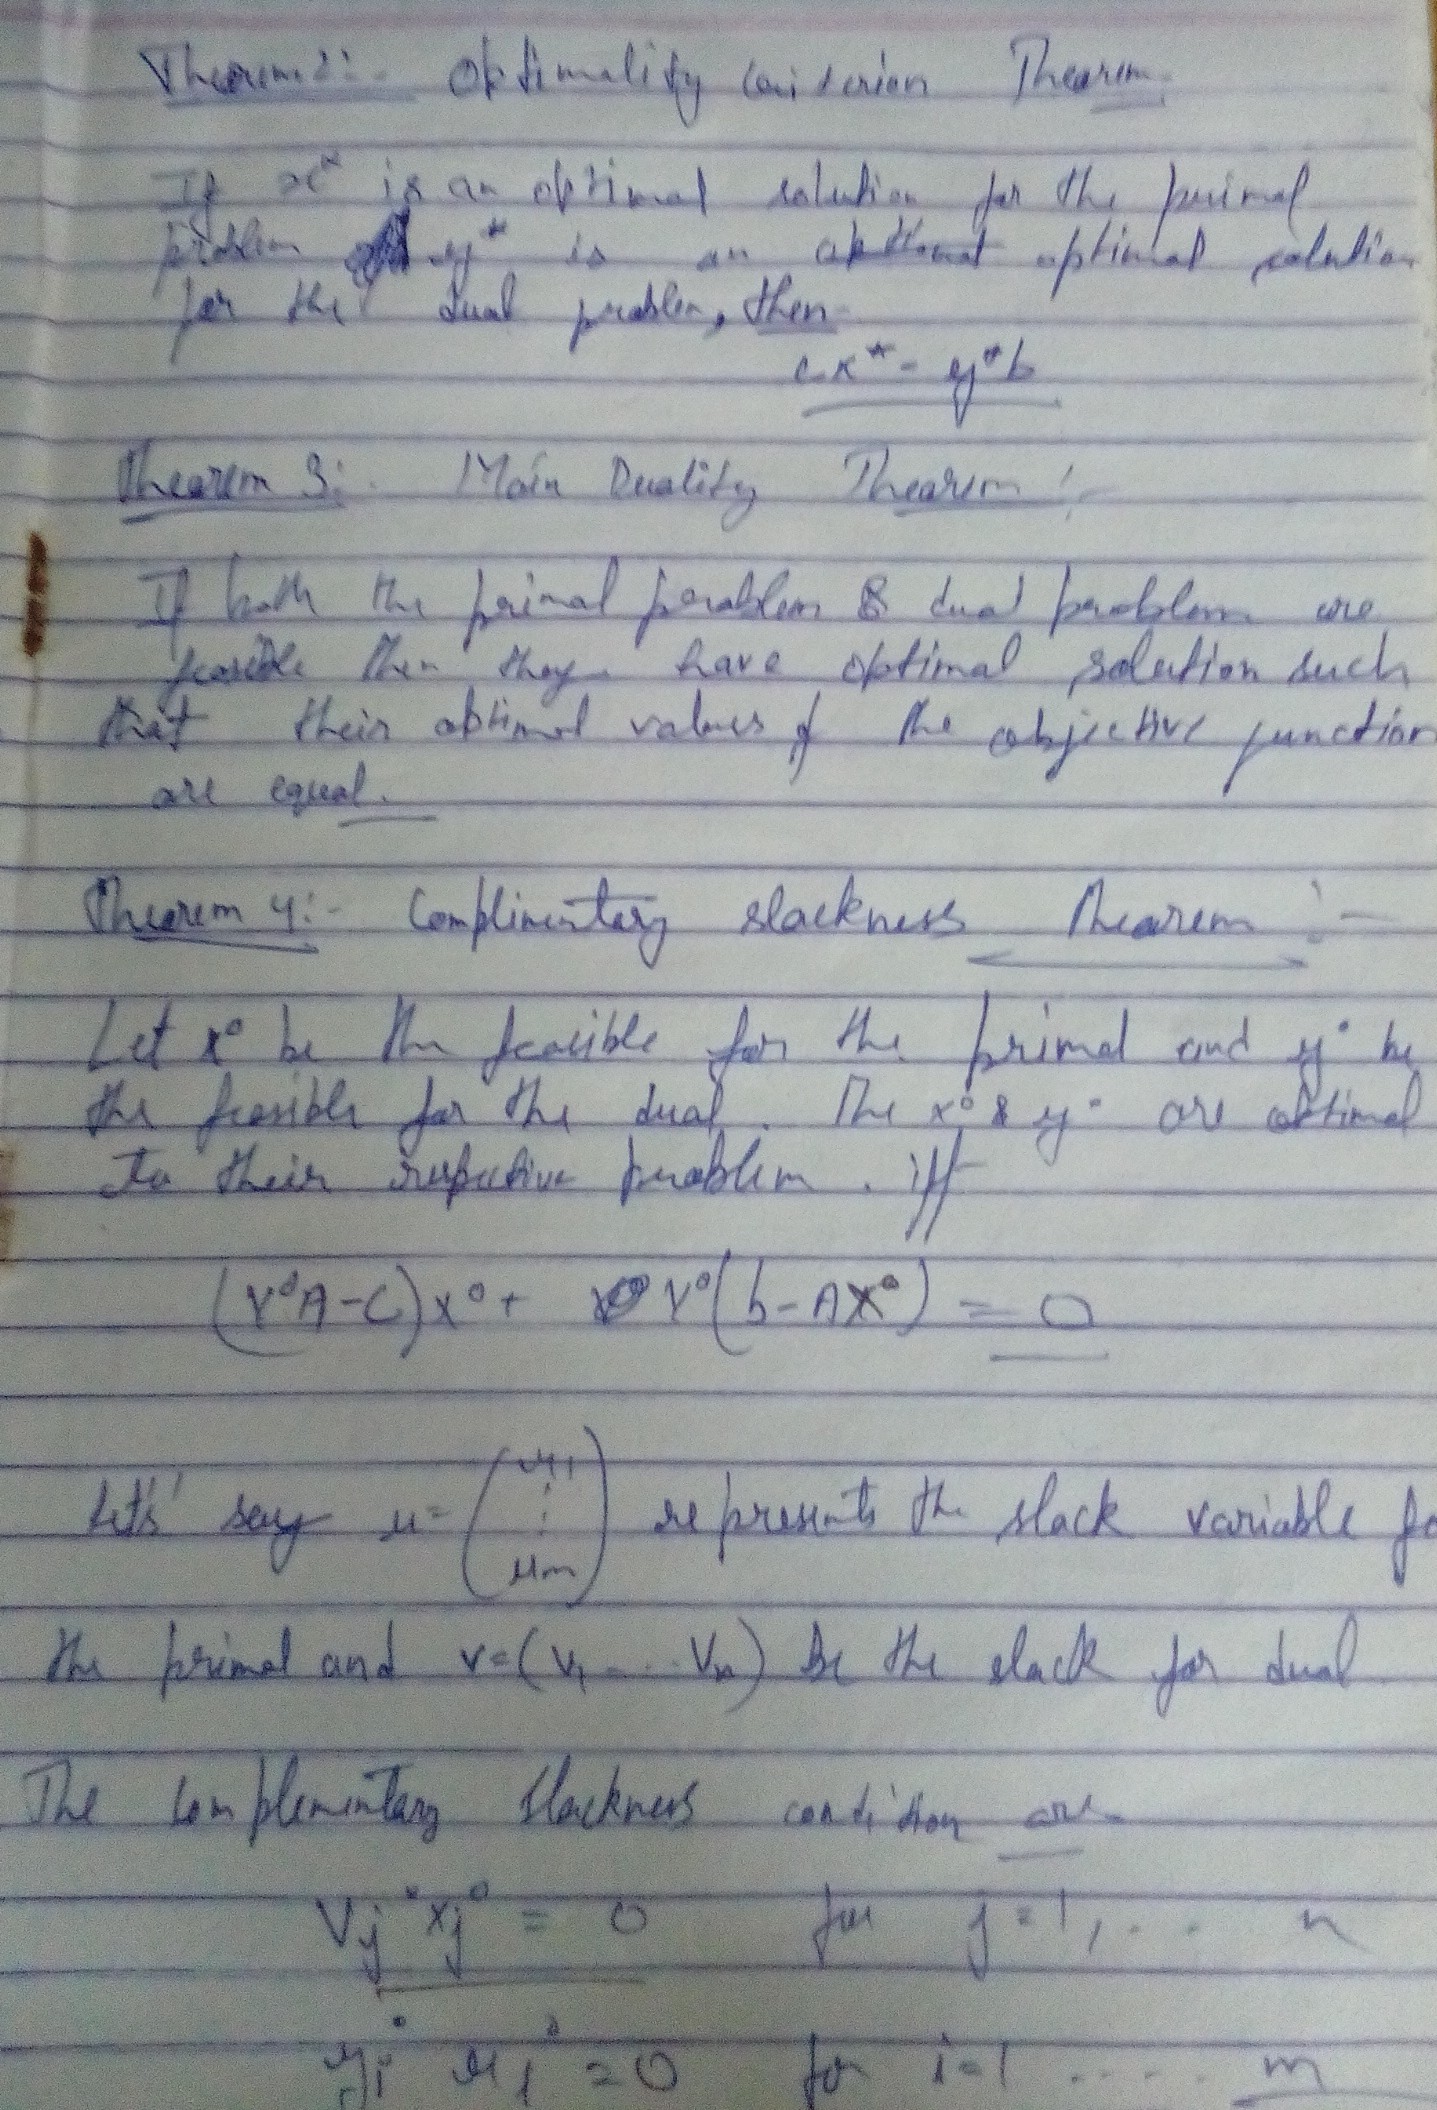 Theorem 2:- Optimality Criterion Theorem:
If x* is an optimal solution for the primal
problem y* is an optimal optimal solution
for the dual problem, then
cx* = y*b
Theorem 3:- Main Duality Theorem :-
If both the primal problem & dual problem are
feasible then they have optimal solution such
that their optimal values of the objective function
are equal.
Theorem 4:- Complimentary slackness Theorem :-
Let x° be the feasible for the primal and y° be
the feasible for the dual. The x° & y° are optimal
to their respective problem. iff
(Y°A-C)x° + Y°(b-AX°) = 0
Let's say u= (u1 ⋮ um) represents the slack variable fo
the primal and v=(v1 ... Vn) be the slack for dual
The complementary slackness condition are
Vj° xj° = 0 for j=1, ... n
yi° ui° = 0 for i=1 ..... m